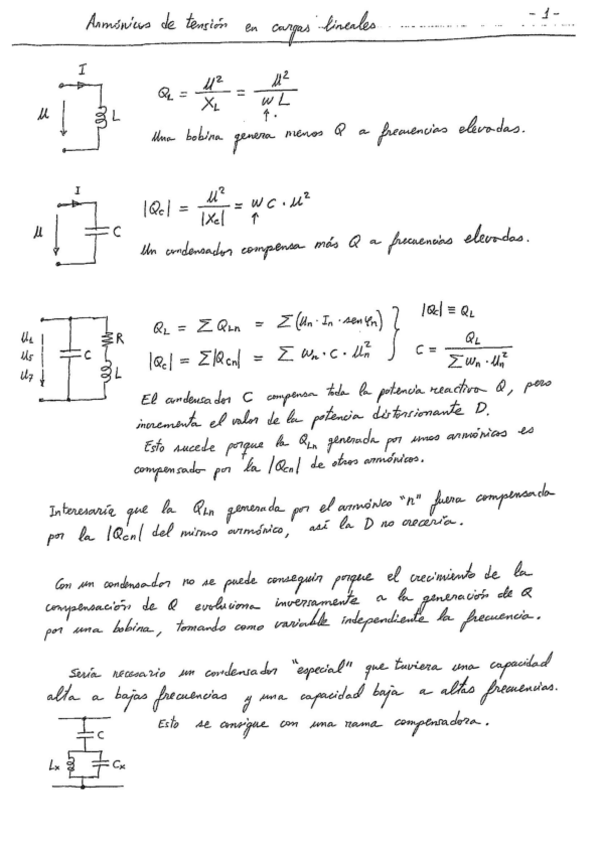 Armónicos de tensión en cargas lineales - 1 -
I
u
L
Q_L = u²/X_L = u²/(wL)
↑
Una bobina genera menos Q a frecuencias elevadas.
I
u
C
|Qc| = u²/|Xc| = wC · u²
↑
Un condensador compensa más Q a frecuencias elevadas.
u₁
u₅
u₇
C
R
L
Q_L = Σ Q_Ln = Σ (u_n · I_n · sen φ_n)
|Qc| = Σ |Qcn| = Σ w_n · C · u_n²
|Qc| ≡ Q_L
C = Q_L / (Σ w_n · u_n²)
El condensador C compensa toda la potencia reactiva Q, pero
incrementa el valor de la potencia distorsionante D.
Esto sucede porque la Q_Ln generada por unos armónicos es
compensado por la |Qcn| de otros armónicos.
Interesaría que la Q_Ln generada por el armónico "n" fuera compensada
por la |Qcn| del mismo armónico, así la D no crecería.
Con un condensador no se puede conseguir porque el crecimiento de la
compensación de Q evoluciona inversamente a la generación de Q
por una bobina, tomando como variable independiente la frecuencia.
Sería necesario un condensador "especial" que tuviera una capacidad
alta a bajas frecuencias y una capacidad baja a altas frecuencias.
Esto se consigue con una rama compensadora.
C
Lx
Cx